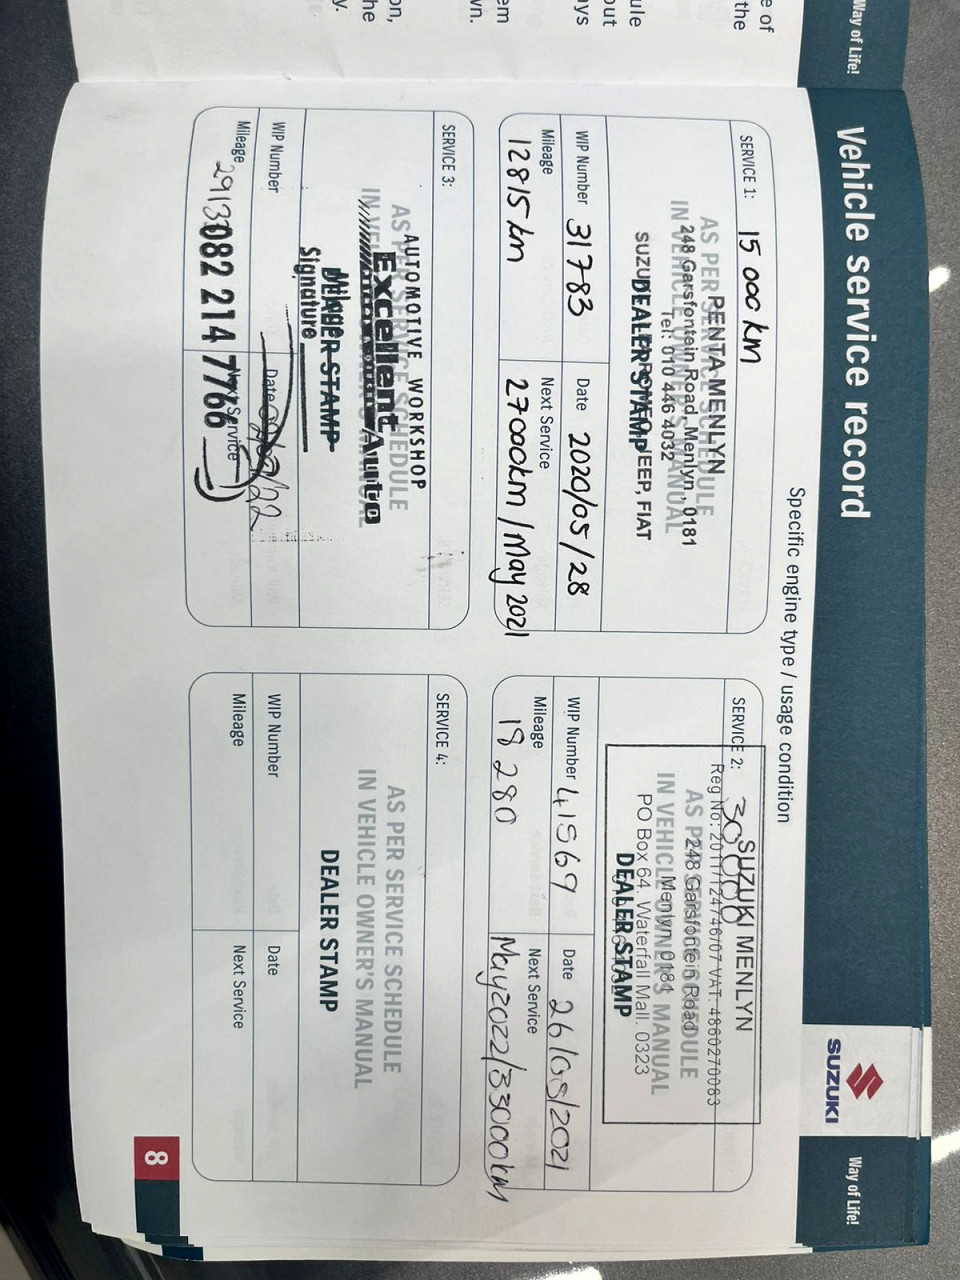 Way of Life!
Vehicle service record
SUZUKI
Way of Life!
Specific engine type / usage condition
SERVICE 1: 15 000 km
AS PER SERVICE SCHEDULE
IN VEHICLE OWNER'S MANUAL
DEALER STAMP
PENTA MENLYN
248 Garsfontein Road, Menlyn, 0181
Tel: 010 446 4032
JEEP, FIAT
WIP Number 31783
Date 2020/05/28
Mileage 12815 km
Next Service 27000km / May 2021
SERVICE 2: 30 000
SUZUKI MENLYN
Reg No: 2011/124746/07 VAT: 4860270083
AS PER SERVICE SCHEDULE
248 Garsfontein Road
IN VEHICLE OWNER'S MANUAL
Menlyn 0181
PO Box 64, Waterfall Mall. 0323
DEALER STAMP
WIP Number 41569
Date 26/05/2021
Mileage 18 280
Next Service May2022/33000km
SERVICE 3:
AS PER SERVICE SCHEDULE
IN VEHICLE OWNER'S MANUAL
AUTOMOTIVE WORKSHOP
Excellent Auto
DEALER STAMP
Signature
WIP Number
Date
Mileage
082 214 7766
Next Service
SERVICE 4:
AS PER SERVICE SCHEDULE
IN VEHICLE OWNER'S MANUAL
DEALER STAMP
WIP Number
Date
Mileage
Next Service
8